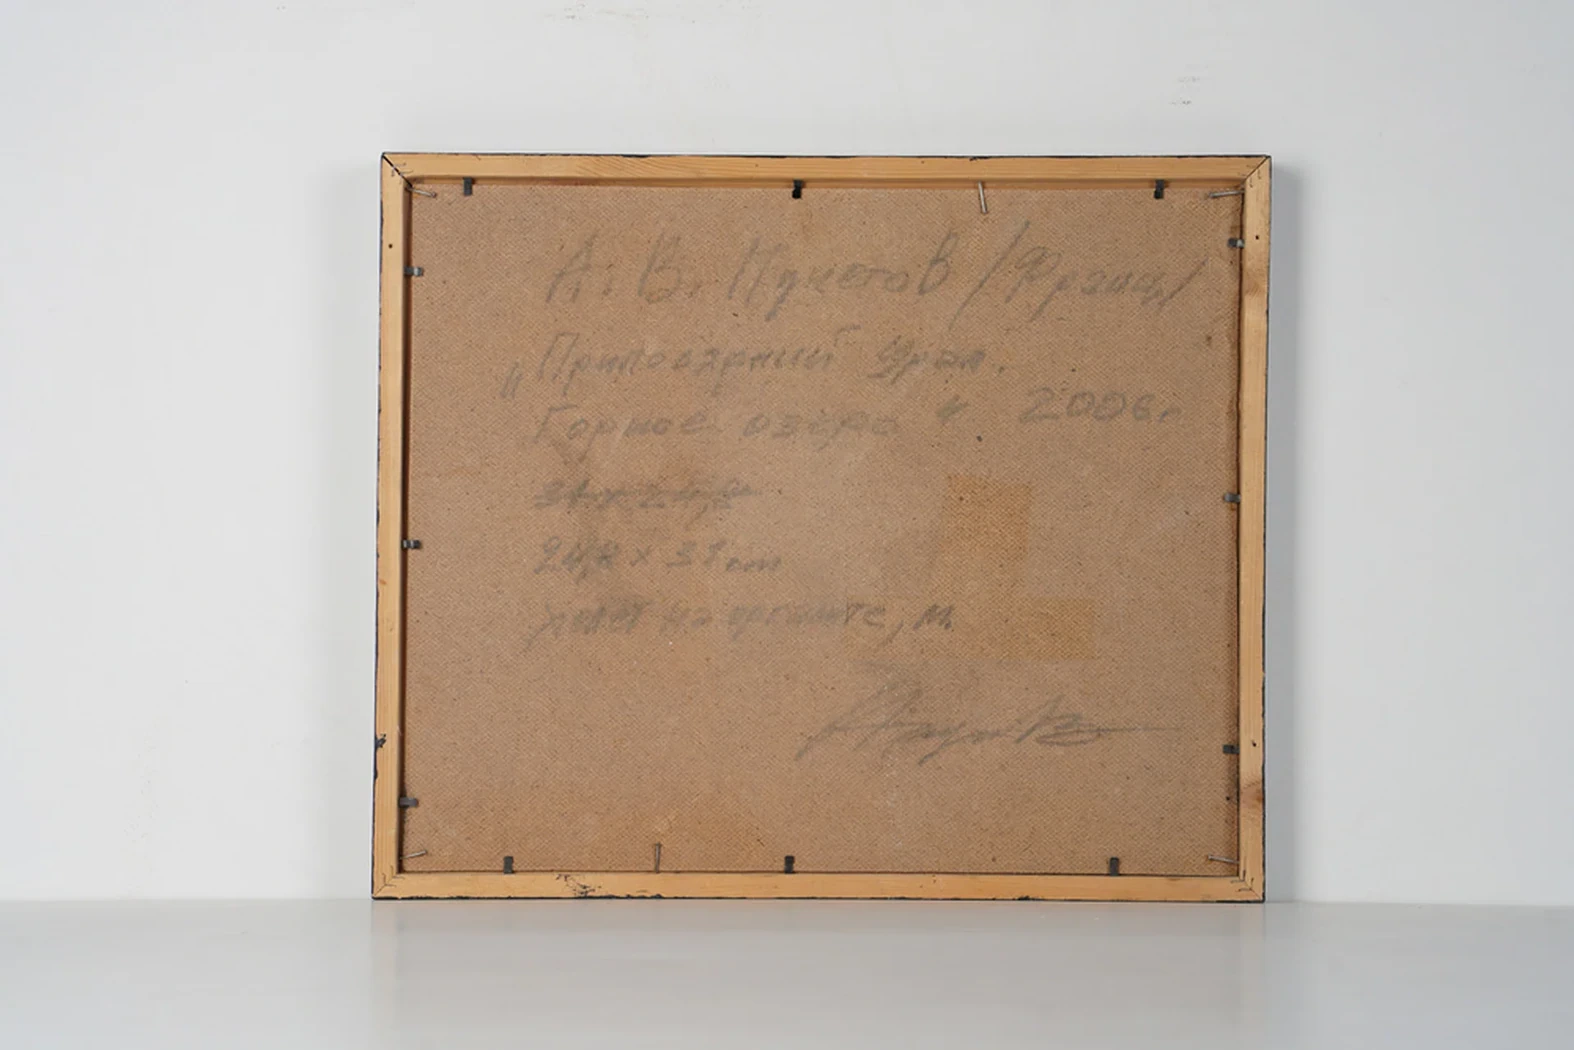 А. В. Пунегов /Франц/
„Приполярный Урал.
Горное озеро“ 2006г.
24,8 x 31 см
холст на оргалите, м.